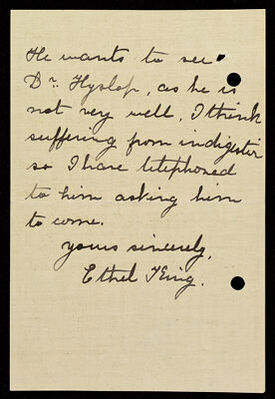 He wants to see
Dr. Hyslop, as he is
not very well, I think
suffering from indigestion
so I have telephoned
to him asking him
to come.
yours sincerely,
Ethel King.